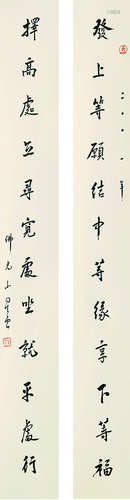 發上等願結中等緣享下等福
二〇〇一年
擇高處立尋寬處坐就平處行
佛光山星雲